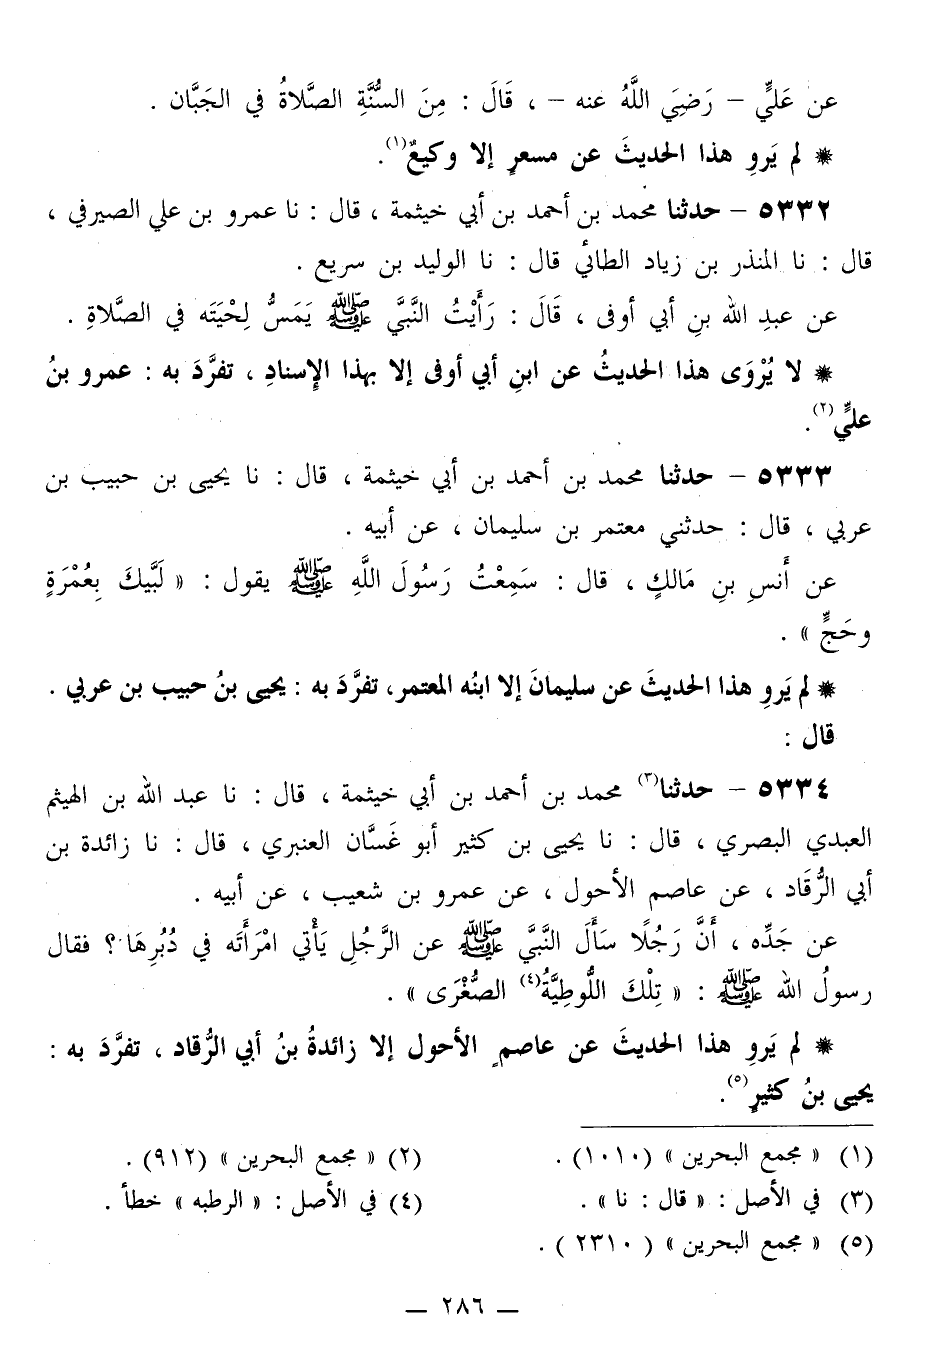 عن عَليٍّ – رَضِيَ اللَّهُ عنه – ، قَالَ : مِنَ السُّنَّةِ الصَّلاةُ في الجَبَّان .
* لم يَروِ هذا الحديثَ عن مسعرٍ إلا وكيعٌ(١).
٥٣٣٢ – حدثنا محمد بن أحمد بن أبي خيثمة ، قال : نا عمرو بن علي الصيرفي ،
قال : نا المنذر بن زياد الطائي قال : نا الوليد بن سريع .
عن عبدِ الله بنِ أبي أوفى ، قَالَ : رَأَيْتُ النَّبيَّ ﷺ يَمَسُّ لِحْيَتَه في الصَّلاةِ .
* لا يُرْوَى هذا الحديثُ عن ابنِ أبي أوفى إلا بهذا الإسنادِ ، تفرَّدَ به : عمرو بنُ
عليٍّ(٢).
٥٣٣٣ – حدثنا محمد بن أحمد بن أبي خيثمة ، قال : نا يحيى بن حبيب بن
عربي ، قال : حدثني معتمر بن سليمان ، عن أبيه .
عن أَنسِ بنِ مَالكٍ ، قال : سَمِعْتُ رَسُولَ اللَّهِ ﷺ يقول : « لَبَّيكَ بِعُمْرَةٍ
وحَجٍّ » .
* لم يَروِ هذا الحديثَ عن سليمانَ إلا ابنُه المعتمر، تفرَّدَ به : يحيى بنُ حبيب بن عربي .
قال :
٥٣٣٤ – حدثنا(٣) محمد بن أحمد بن أبي خيثمة ، قال : نا عبد الله بن الهيثم
العبدي البصري ، قال : نا يحيى بن كثير أبو غَسَّان العنبري ، قال : نا زائدة بن
أبي الرُّقَاد ، عن عاصم الأحول ، عن عمرو بن شعيب ، عن أبيه .
عن جَدِّه ، أَنَّ رَجُلًا سَأَلَ النَّبيَّ ﷺ عن الرَّجُلِ يَأْتي امْرَأَتَه في دُبُرِهَا ؟ فقال
رسولُ الله ﷺ : « تِلْكَ اللُّوطِيَّةُ(٤) الصُّغْرَى » .
* لم يَروِ هذا الحديثَ عن عاصمٍ الأحول إلا زائدةُ بنُ أبي الرُّقاد ، تفرَّدَ به :
يحيى بنُ كثيرٍ(٥).
(١) « مجمع البحرين » (١٠١٠) . (٢) « مجمع البحرين » (٩١٢) .
(٣) في الأصل : « قال : نا » . (٤) في الأصل : « الرطبه » خطأ .
(٥) « مجمع البحرين » ( ٢٣١٠ ) .
— ٢٨٦ —